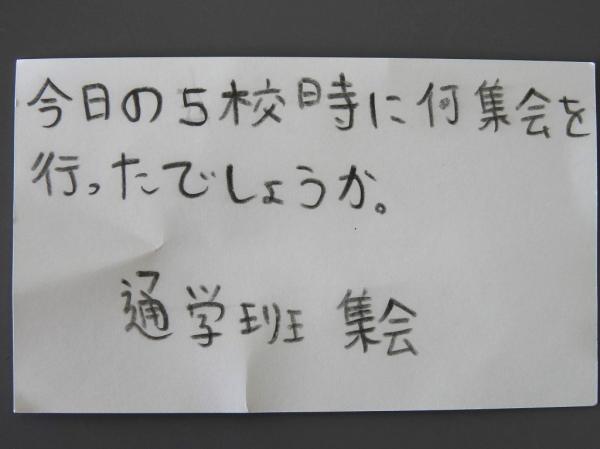 今日の5校時に何集会を
行ったでしょうか。
通学班 集会